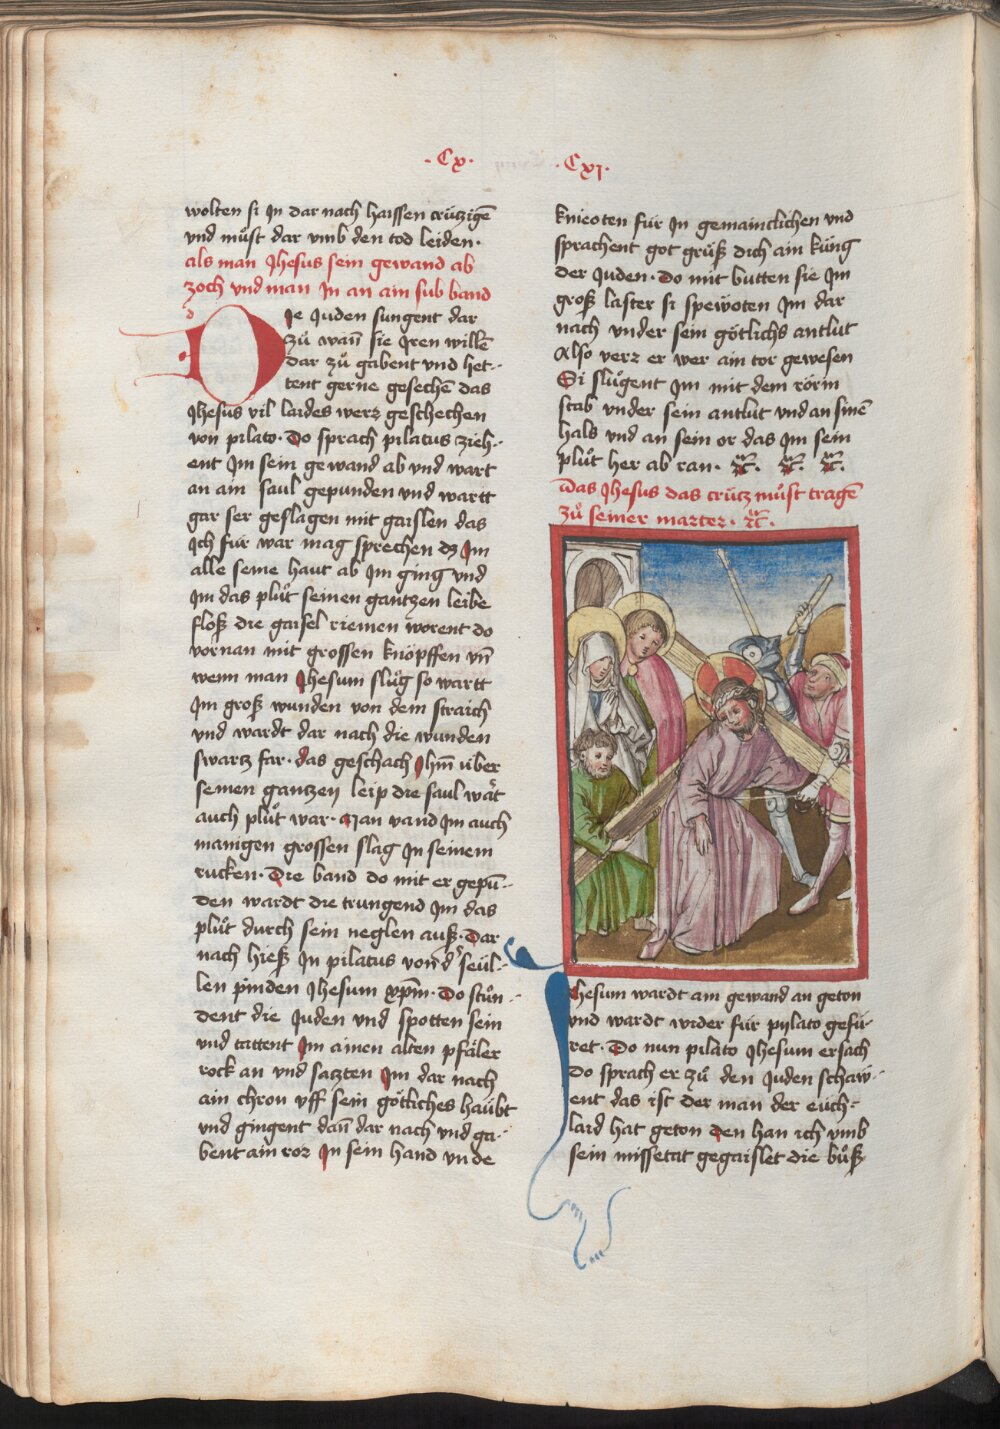 · Cx ·
wolten si Jn dar nach haissen crützigē
vnd můst dar vmb den tod leiden ·
als man Jhesus sein gewand ab
zoch vnd man Jn an ain sul band
DJe Juden sungent dar
zů wañ sie Jren willē
dar zů gabent vnd het-
tent gerne gesechē das
Jhesus vil laides werz geschechen
von pilato · Do sprach pilatus zieh-
ent Jm sein gewand ab vnd wart
an ain saul gepunden vnd wartt
gar ser geslagen mit gaislen das
Jch für war mag sprechen dz Jm
alle seine haut ab Jm ging vnd
Jm das plůt seinen gantzen leibe
floß die gaisel riemen worent do
vornan mit grossen knöpffen vñ
wenn man Jhesum slůg so wartt
Jm groß wunden von dem straich
vnd wardt dar nach die wunden
swartz far · das geschach Jhm̄ über
seinen gantzen leip die saul wär
auch plůt war · Man vand Jm auch
manigen grossen slag Jn seinem
rucken · Die band do mit er gepū-
den wardt die trungend Jm das
plůt durch sein neglen auß · Dar
nach hieß Jn pilatus von d' seül-
len pinden Jhesum xp̄m · Do stůn-
dent die Juden vnd spotten sein
vnd tattent Jm ainen alten pfäler
rock an vnd satzten Jm dar nach
ain chron vff sein götliches haübt
vnd gingent dañ dar nach vnd ga-
bent ain ror Jn sein hand vnde
· Cxj ·
knieoten für Jn gemainclichen vnd
sprachent got grüß dich ain küng
der Juden · Do mit butten sie Jm
groß laster si spewoten Jm dar
nach vnder sein götlichs antlut
Also verz er wer ain tor gewesen
Si slůgent Jm mit dem rörin
stab vnder sein antlut vnd an sinē
hals vnd an sein or das Jm sein
plůt her ab ran · ⁊c̄ · ⁊c̄ · ⁊c̄ ·
Das Jhesus das crütz můst tragē
zů seiner marter · ⁊c̄ ·
Jhesum wardt ain gewand an geton
vnd wardt wider für pylato gefü-
ret · Do nun pilato Jhesum ersach
do sprach er zů den Juden schaw-
ent das ist der man der eüch
laid hat geton den han ich vmb
sein missetat gegaislet die bůß